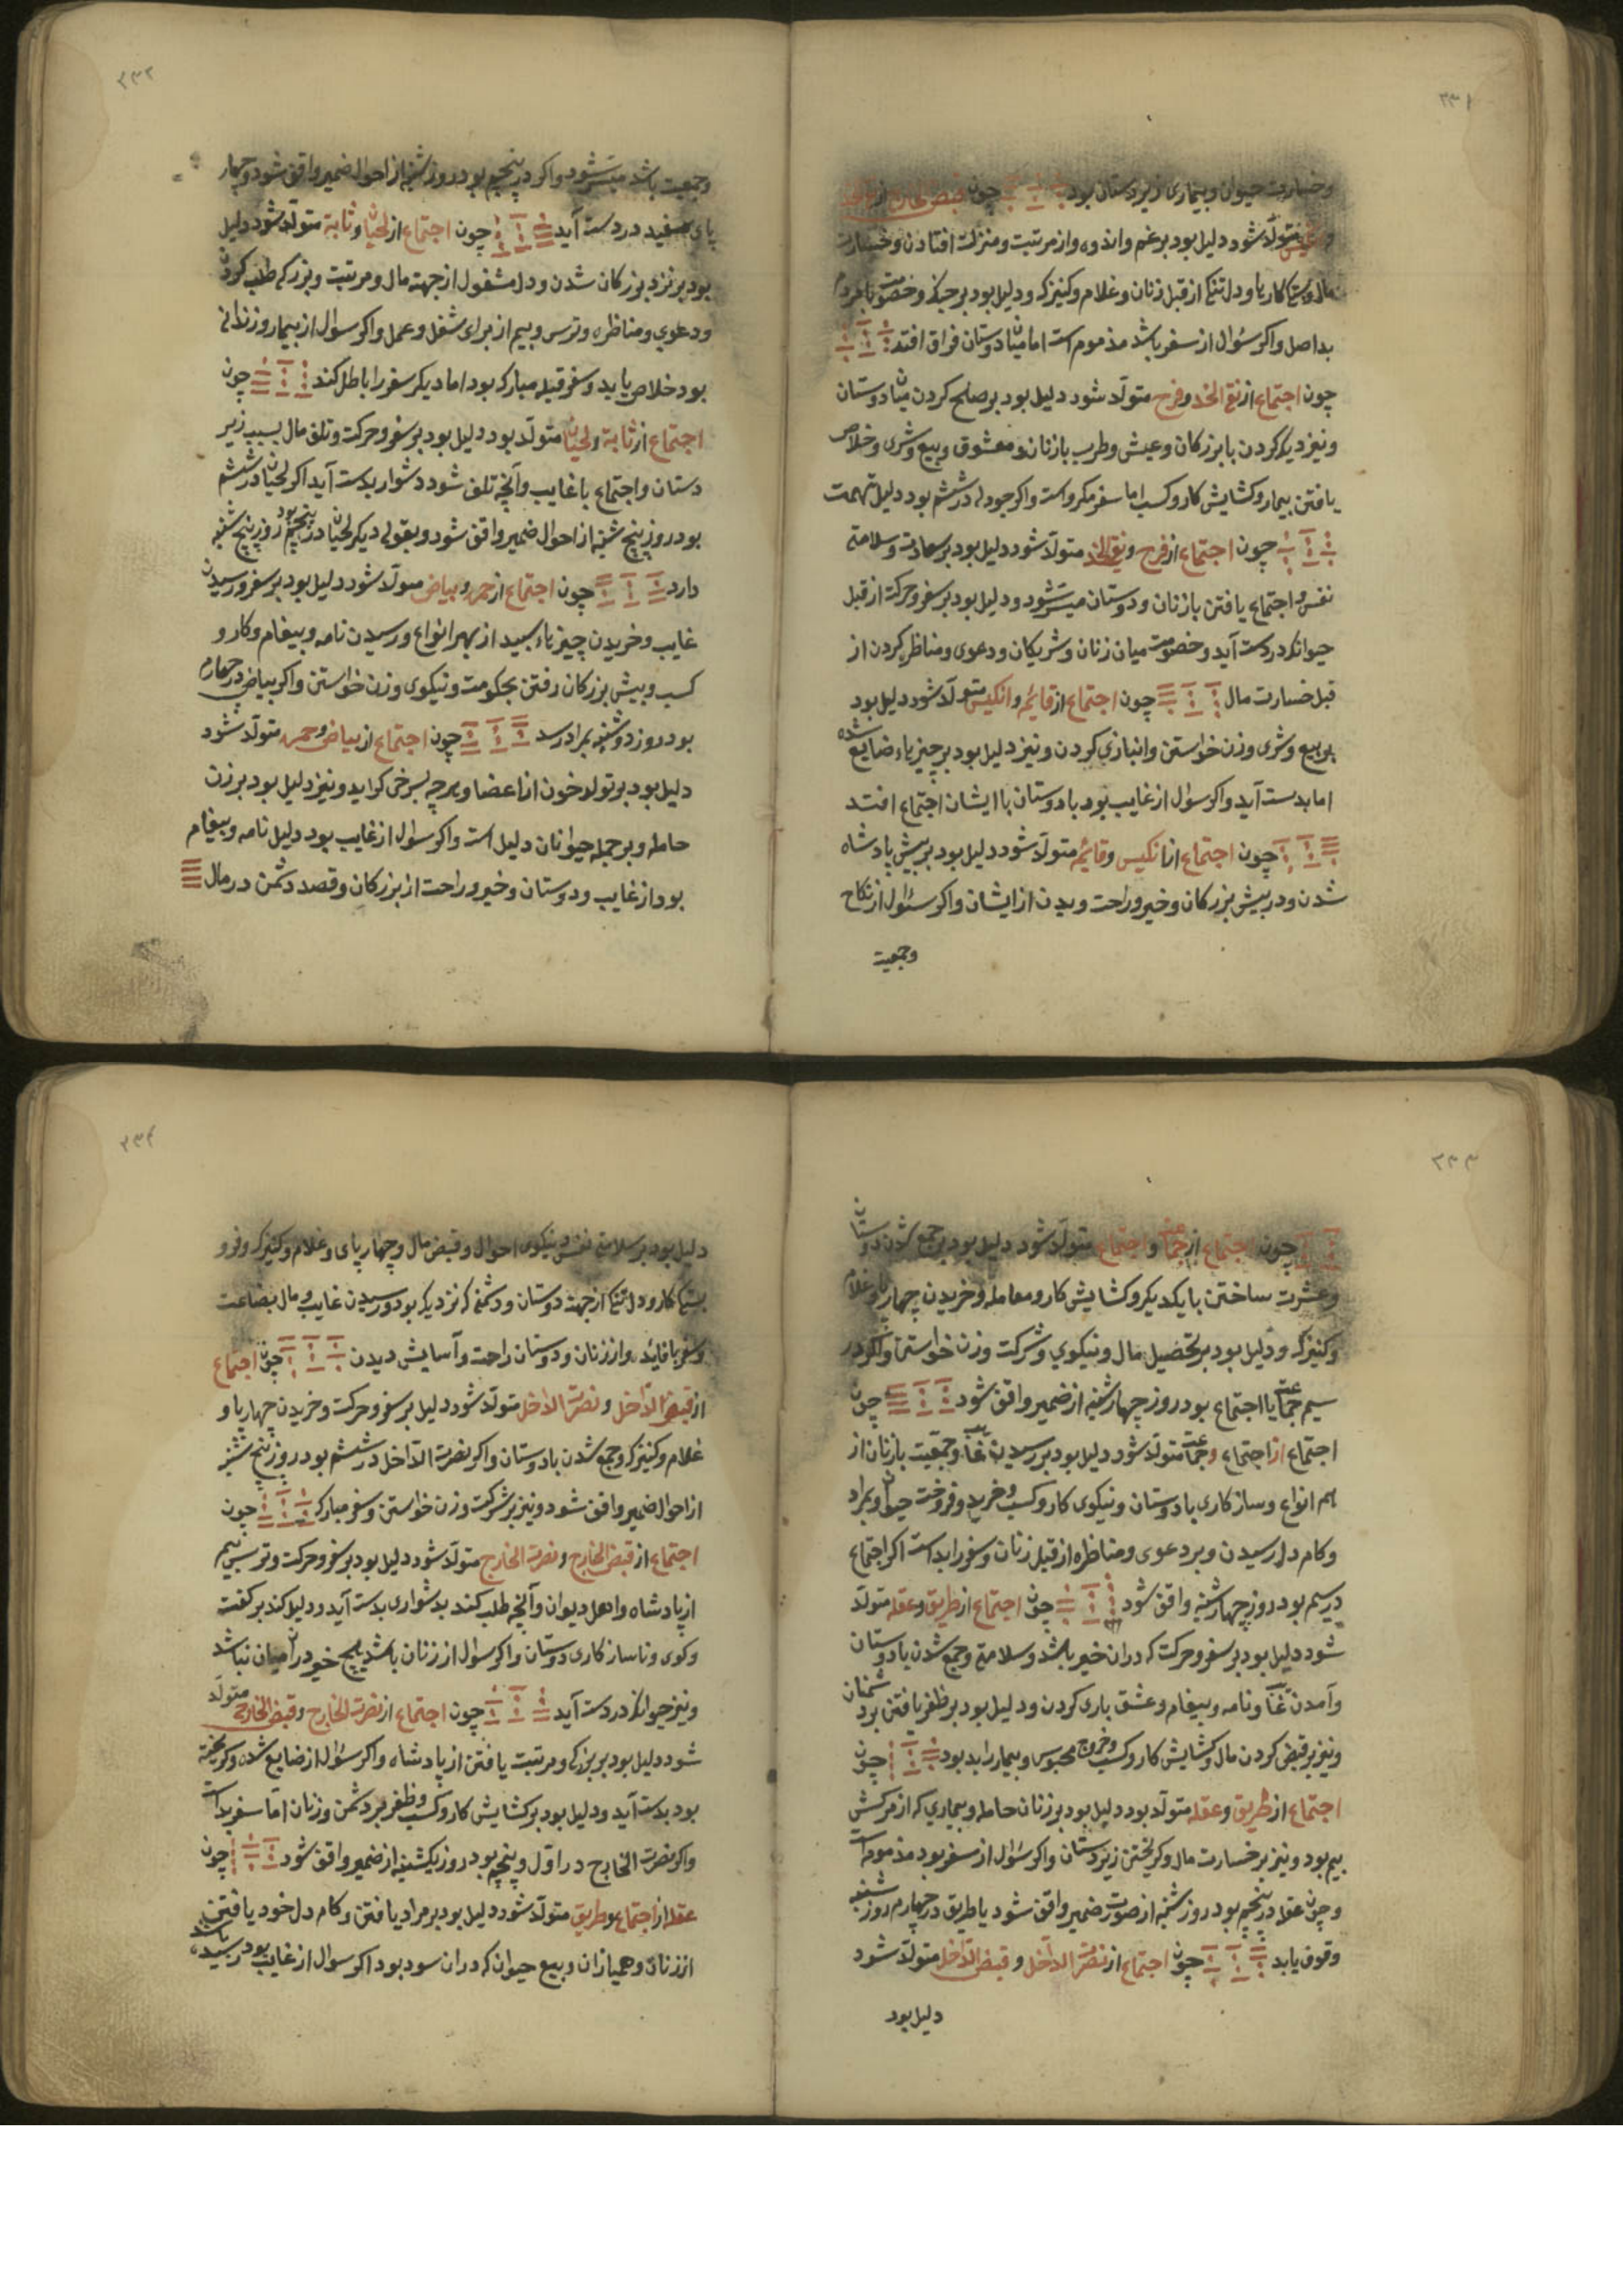 ۲۳۱
وخسارت حیوان وبیماری زیردستان بود چون قبض الخارج از
متولّد شود دلیل بود برغم واندوه واز مرتبت ومنزلت افتادن وخسارت
مال وبستکی کارها ودلتنکی از قبل زنان وغلام وکنیزک ودلیل بود برجنک وخصومت بامردم
بداصل واکر سئوال از سفر باشد مذموم است اما میان دوستان فراق افتد
چون اجتماع از نقی الخد وفرح متولّد شود دلیل بود برصلح کردن میان دوستان
ونیز دیگر کردن با بزرکان وعیش وطرب بازنان ومعشوق وبیع وشری وخلاص
یافتن بیمار وکشایش کار وکسب اما سفر مکروه است واکر جودله درششم بود دلیل تهمت
چون اجتماع از فرح ونقی الخد متولّد شود دلیل بود برسعادت وسلامتی
نفس واجتماع یافتن بازنان ودوستان میسّر شود ودلیل بود برسفر وحرکت از قبل
حیوانکه دردست آید وخصومت میان زنان وشریکان ودعوی ومناظره کردن از
قبل خسارت مال چون اجتماع از قائمه وانکیس متولّد شود دلیل بود
بر بیع وشری وزن خواستن وانبازی کردن ونیز دلیل بود برچیزهاء ضایع شده
اما بدست آید واکر سوال از غایب بود بادوستان با ایشان اجتماع افتد
چون اجتماع از انکیس وقائمه متولّد شود دلیل بود بر پیش پادشاه
شدن ودر پیش بزرکان وخیر وراحت وبدن از ایشان واکر سئوال از نکاح
وجمعیت
۲۳۲
وجمعیت باشد میسّر شود واکر در پنجم بود روز شنبه از احوال ضمیر واقف شود وچهار
پای سفید دردست آید چون اجتماع از لحیان وثابته متولّد شود دلیل
بود بر نزد بزرکان شدن ودل مشغول از جهة مال ومرتبت وبزرکی طلب کردن
ودعوی ومناظره وترس وبیم از برای شغل وعمل واکر سوال از بیمار وزندانی
بود خلاص یابد وسفر قبله مبارک بود اما دیکر سفر را باطل کند چون
اجتماع از ثابته ولحیان متولّد بود دلیل بود برسفر وحرکت وتلف مال بسبب زیر
دستان واجتماع با غایب وآنچه تلف شود دشوار بدست آید اکر لحیان درششم
بود روز پنج شنبه از احوال ضمیر واقف شود وبقولی دیکر لحیان در پنجم بود روز پنج شنبه
دارد چون اجتماع از حمره وبیاض متولّد شود دلیل بود برسفر ورسیدن
غایب وخریدن چیزهاء سپید از بهر انواع ورسیدن نامه وپیغام وکار و
کسب وپیش بزرکان رفتن بحکومت ونیکوی وزن خواستن واکر بیاض درچهارم
بود روز دوشنبه بمراد رسد چون اجتماع از بیاض وحمره متولّد شود
دلیل بود برتولد خون از اعضا وهرچه بسرخی کراید ونیز دلیل بود برزن
حامله وبرجمله حیوانان دلیل است واکر سوال از غایب بود دلیل نامه وپیغام
بود از غایب ودوستان وخیر وراحت از بزرکان وقصد دشمن درمال
۲۳۳
چون اجتماع از جماعت واجتماع متولّد شود دلیل بود برجمع شدن دوستان
وعشرت ساختن بایکدیکر وکشایش کار ومعامله وخریدن چهارپا وغلام
وکنیزک ودلیل بود برتحصیل مال ونیکوی وشرکت وزن خواستن واکر در
سیم جماعت یا اجتماع بود روز چهارشنبه از ضمیر واقف شود چون
اجتماع از اجتماع وجماعت متولّد شود دلیل بود بررسیدن غایب وجمعیّت بازنان از
هم انواع وساز کاری بادوستان ونیکوی کار وکسب وخرید وفروخت حیوان وبمراد
وکام دل رسیدن وبر دعوی ومناظره از قبل زنان وسفر را بداست اکر اجتماع
درسیم بود روز چهارشنبه واقف شود چون اجتماع از طریق وعقله متولّد
شود دلیل بود برسفر وحرکت که دران خیر باشد وسلامتی وجمع شدن بادوستان
وآمدن غایب ونامه وپیغام وعشق بازی کردن ودلیل بود برظفر یافتن بر دشمنان
ونیز برقبض کردن مال وکشایش کار وکسب وخروج محبوس وبیمار را بد بود چون
اجتماع از طریق وعقله متولّد بود دلیل بود برزنان حامله وبیماری که از مرکش
بیم بود ونیز برخسارت مال وکریختن زیردستان واکر سئوال از سفر بود مذموم است
وچون عقله در پنجم بود روز شنبه از صورت ضمیر واقف شود یا طریق درچهارم روز شنبه
وقوف یابد چون اجتماع از نصرت الدّاخل وقبض الدّاخل متولّد شود
دلیل بود
۲۳۴
دلیل بود برسلامتی نفس ونیکوی احوال وقبض مال وچهارپای وغلام وکنیزک وفرو
بستکی کار ودلتنکی از جهة دوستان ودشمنی که نزدیک بود ورسیدن غایب ومال بضاعت
وسفر بافائده واز زنان ودوستان راحت وآسایش دیدن چون اجتماع
از قبض الدّاخل ونصرت الدّاخل متولّد شود دلیل برسفر وحرکت وخریدن چهارپا و
غلام وکنیزک وجمع شدن بادوستان واکر نصرت الدّاخل درششم بود روز پنج شنبه
از احوال ضمیر واقف شود ونیز برشرکت وزن خواستن وسفر مبارک چون
اجتماع از قبض الخارج ونصرت الخارج متولّد شود دلیل بود برسفر وحرکت وترس وبیم
از پادشاه واهل دیوان وآنچه طلب کند بدشواری بدست آید ودلیل کند برگفت
وکوی وناساز کاری دوستان واکر سوال از زنان باشد هیچ خیر دران میان نباشد
ونیز حیوانکه دردست آید چون اجتماع از نصرت الخارج وقبض الخارج متولّد
شود دلیل بود بربزرکی ومرتبت یافتن از پادشاه واکر سئوال از ضایع شده وکریخته
بود بدست آید ودلیل بود برکشایش کار وکسب وظفر بر دشمن وزنان امّا سفر بد است
واکر نصرت الخارج در اوّل وپنجم بود روز یکشنبه از ضمیر واقف شود چون
عقله از اجتماع وطریق متولّد شود دلیل بود برمراد یافتن وکام دل خود یافتن
از زنان وهمبازان وبیع حیوان که دران سود بود اکر سوال از غایب بود رسیده باشد